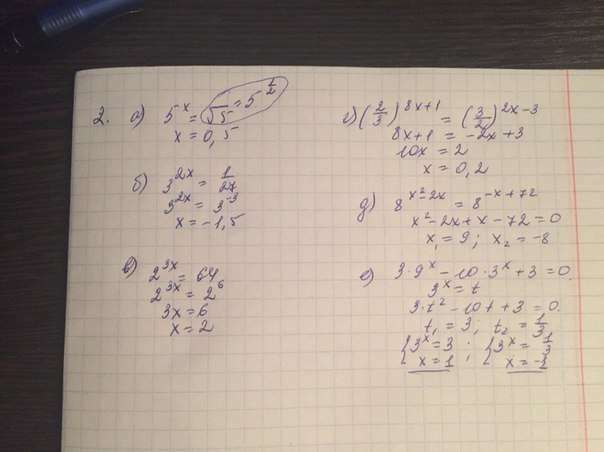 2. а) 5^x = √5 = 5^(1/2)
x = 0,5
б) 3^(2x) = 1/27
3^(2x) = 3^(-3)
x = -1,5
в) 2^(3x) = 64
2^(3x) = 2^6
3x = 6
x = 2
г) (2/3)^(8x+1) = (3/2)^(2x-3)
8x+1 = -2x+3
10x = 2
x = 0,2
д) 8^(x²-2x) = 8^(-x+72)
x²-2x+x-72=0
x₁ = 9; x₂ = -8
е) 3·9^x - 10·3^x + 3 = 0
3^x = t
3·t² - 10t + 3 = 0.
t₁ = 3, t₂ = 1/3
{3^x = 3 ; {3^x = 1/3
x = 1 x = -1